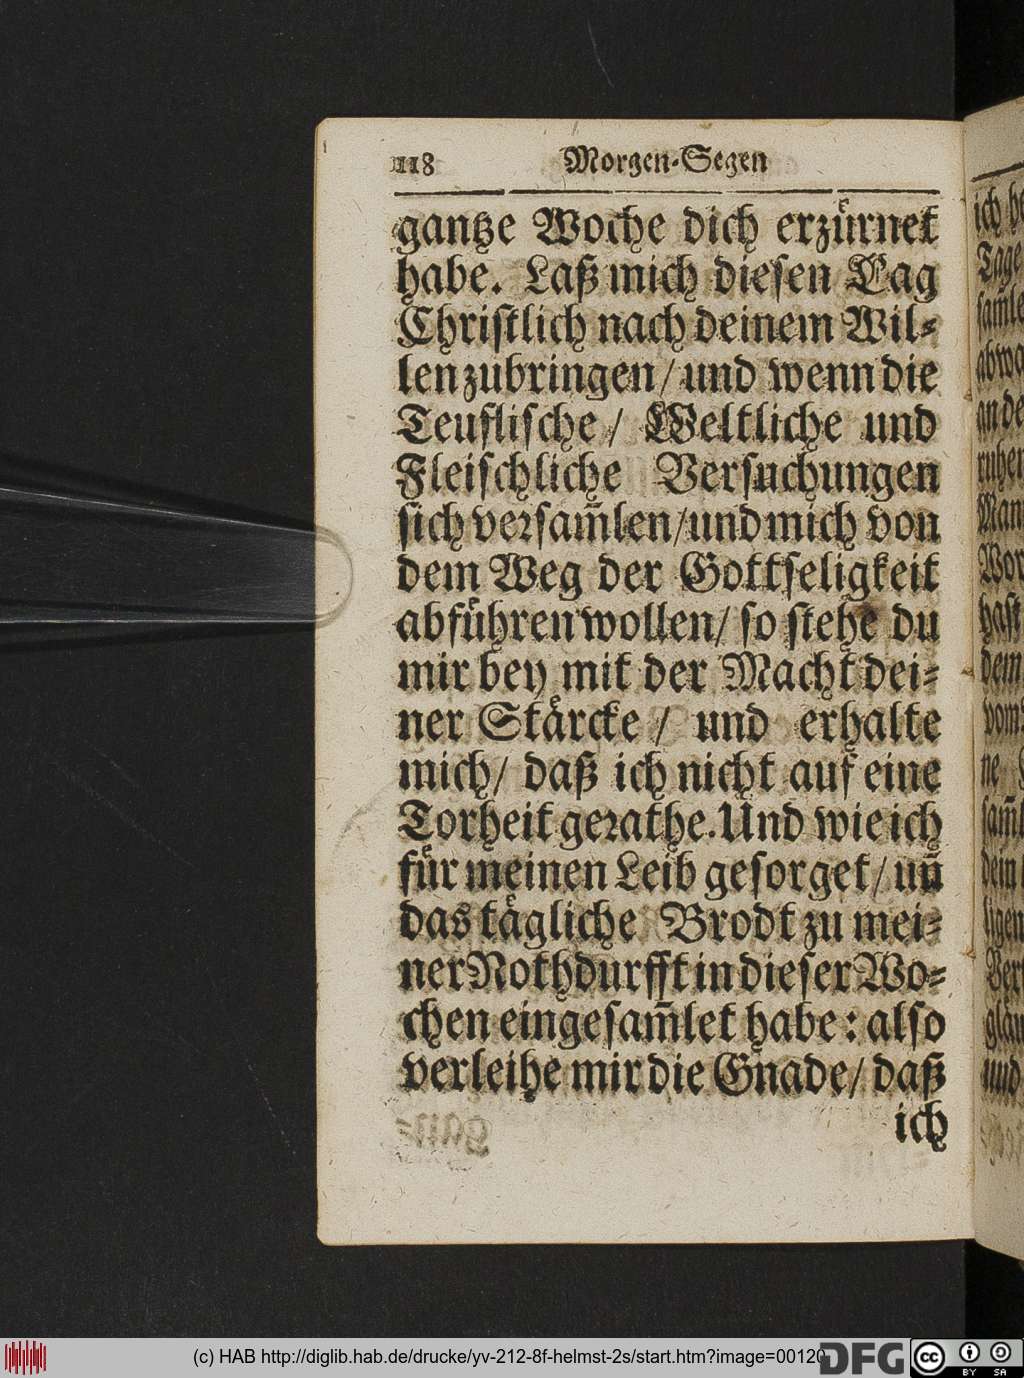 118 Morgen-Segen
gantze Woche dich erzürnet
habe. Laß mich diesen Tag
Christlich nach deinem Wil-
len zubringen/ und wenn die
Teuflische/ Weltliche und
Fleischliche Versuchungen
sich versam̃len/ und mich von
dem Weg der Gottseligkeit
abführen wollen/ so stehe du
mir bey mit der Macht dei-
ner Stärcke/ und erhalte
mich/ daß ich nicht auf eine
Torheit gerathe. Und wie ich
für meinen Leib gesorget/ un̄
das tägliche Brodt zu mei-
ner Nothdurfft in dieser Wo-
chen eingesam̃let habe: also
verleihe mir die Gnade/ daß
ich
ich
Tage
an de
Wor
hast
dem
vom
ne
dein
ligen
und
(c) HAB http://diglib.hab.de/drucke/yv-212-8f-helmst-2s/start.htm?image=00120
DFG
cc BY SA